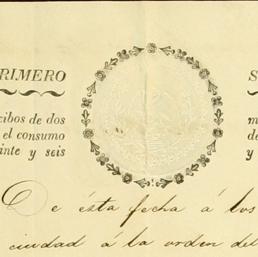 RIMERO S
cibos de dos m
el consumo de
inte y seis y
De ésta fecha á los
ciudad á la orden del